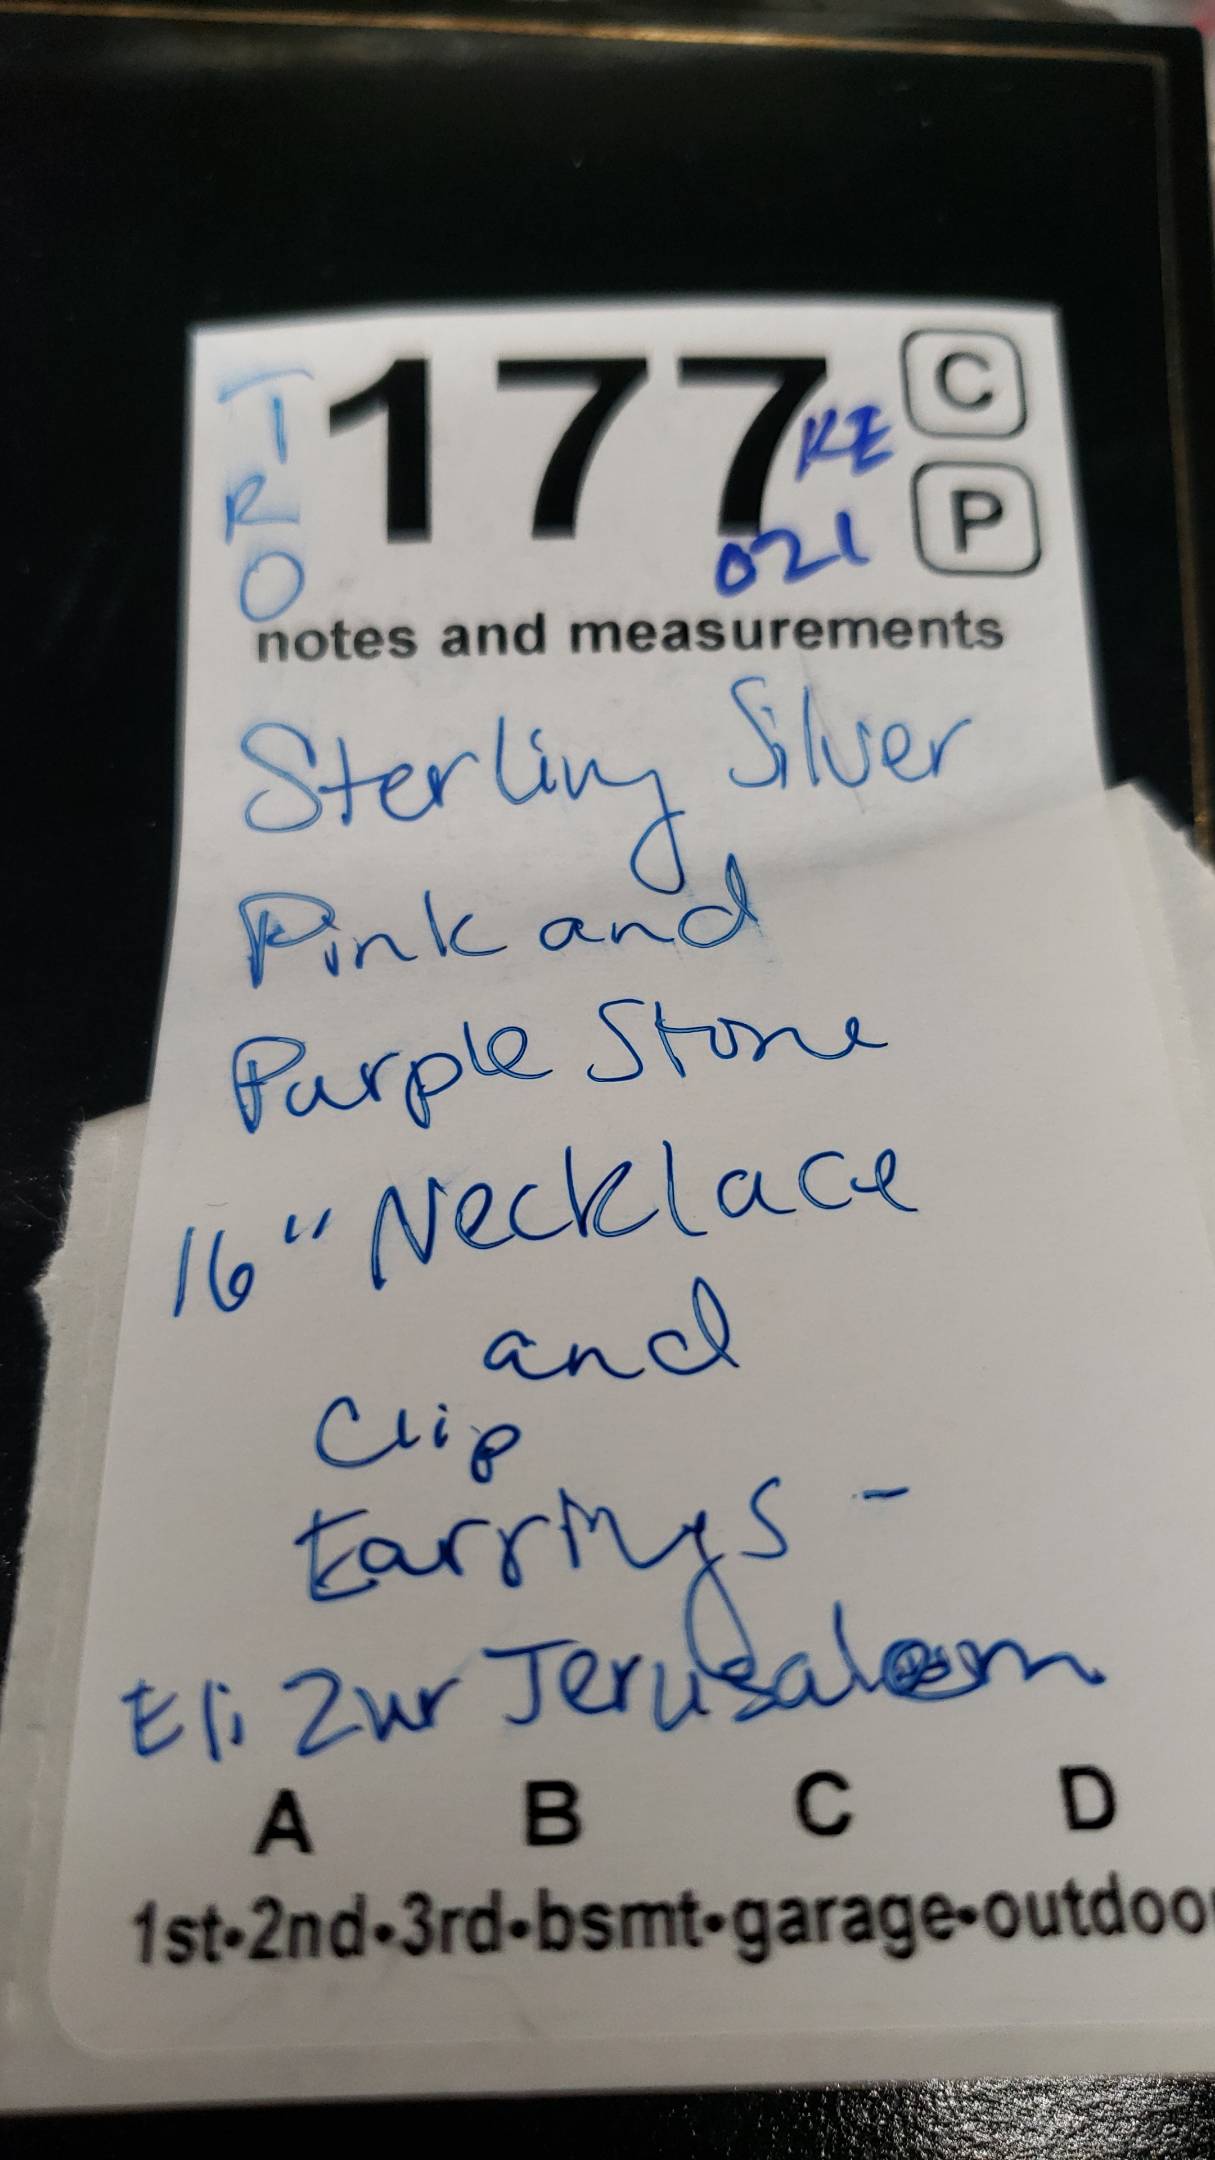 T 177 C
R KE P
O 021
notes and measurements
Sterling Silver
Pink and
Purple Stone
16" Necklace
and
Clip
Earrings -
Eli Zur Jerusalem
A B C D
1st•2nd•3rd•bsmt•garage•outdoor